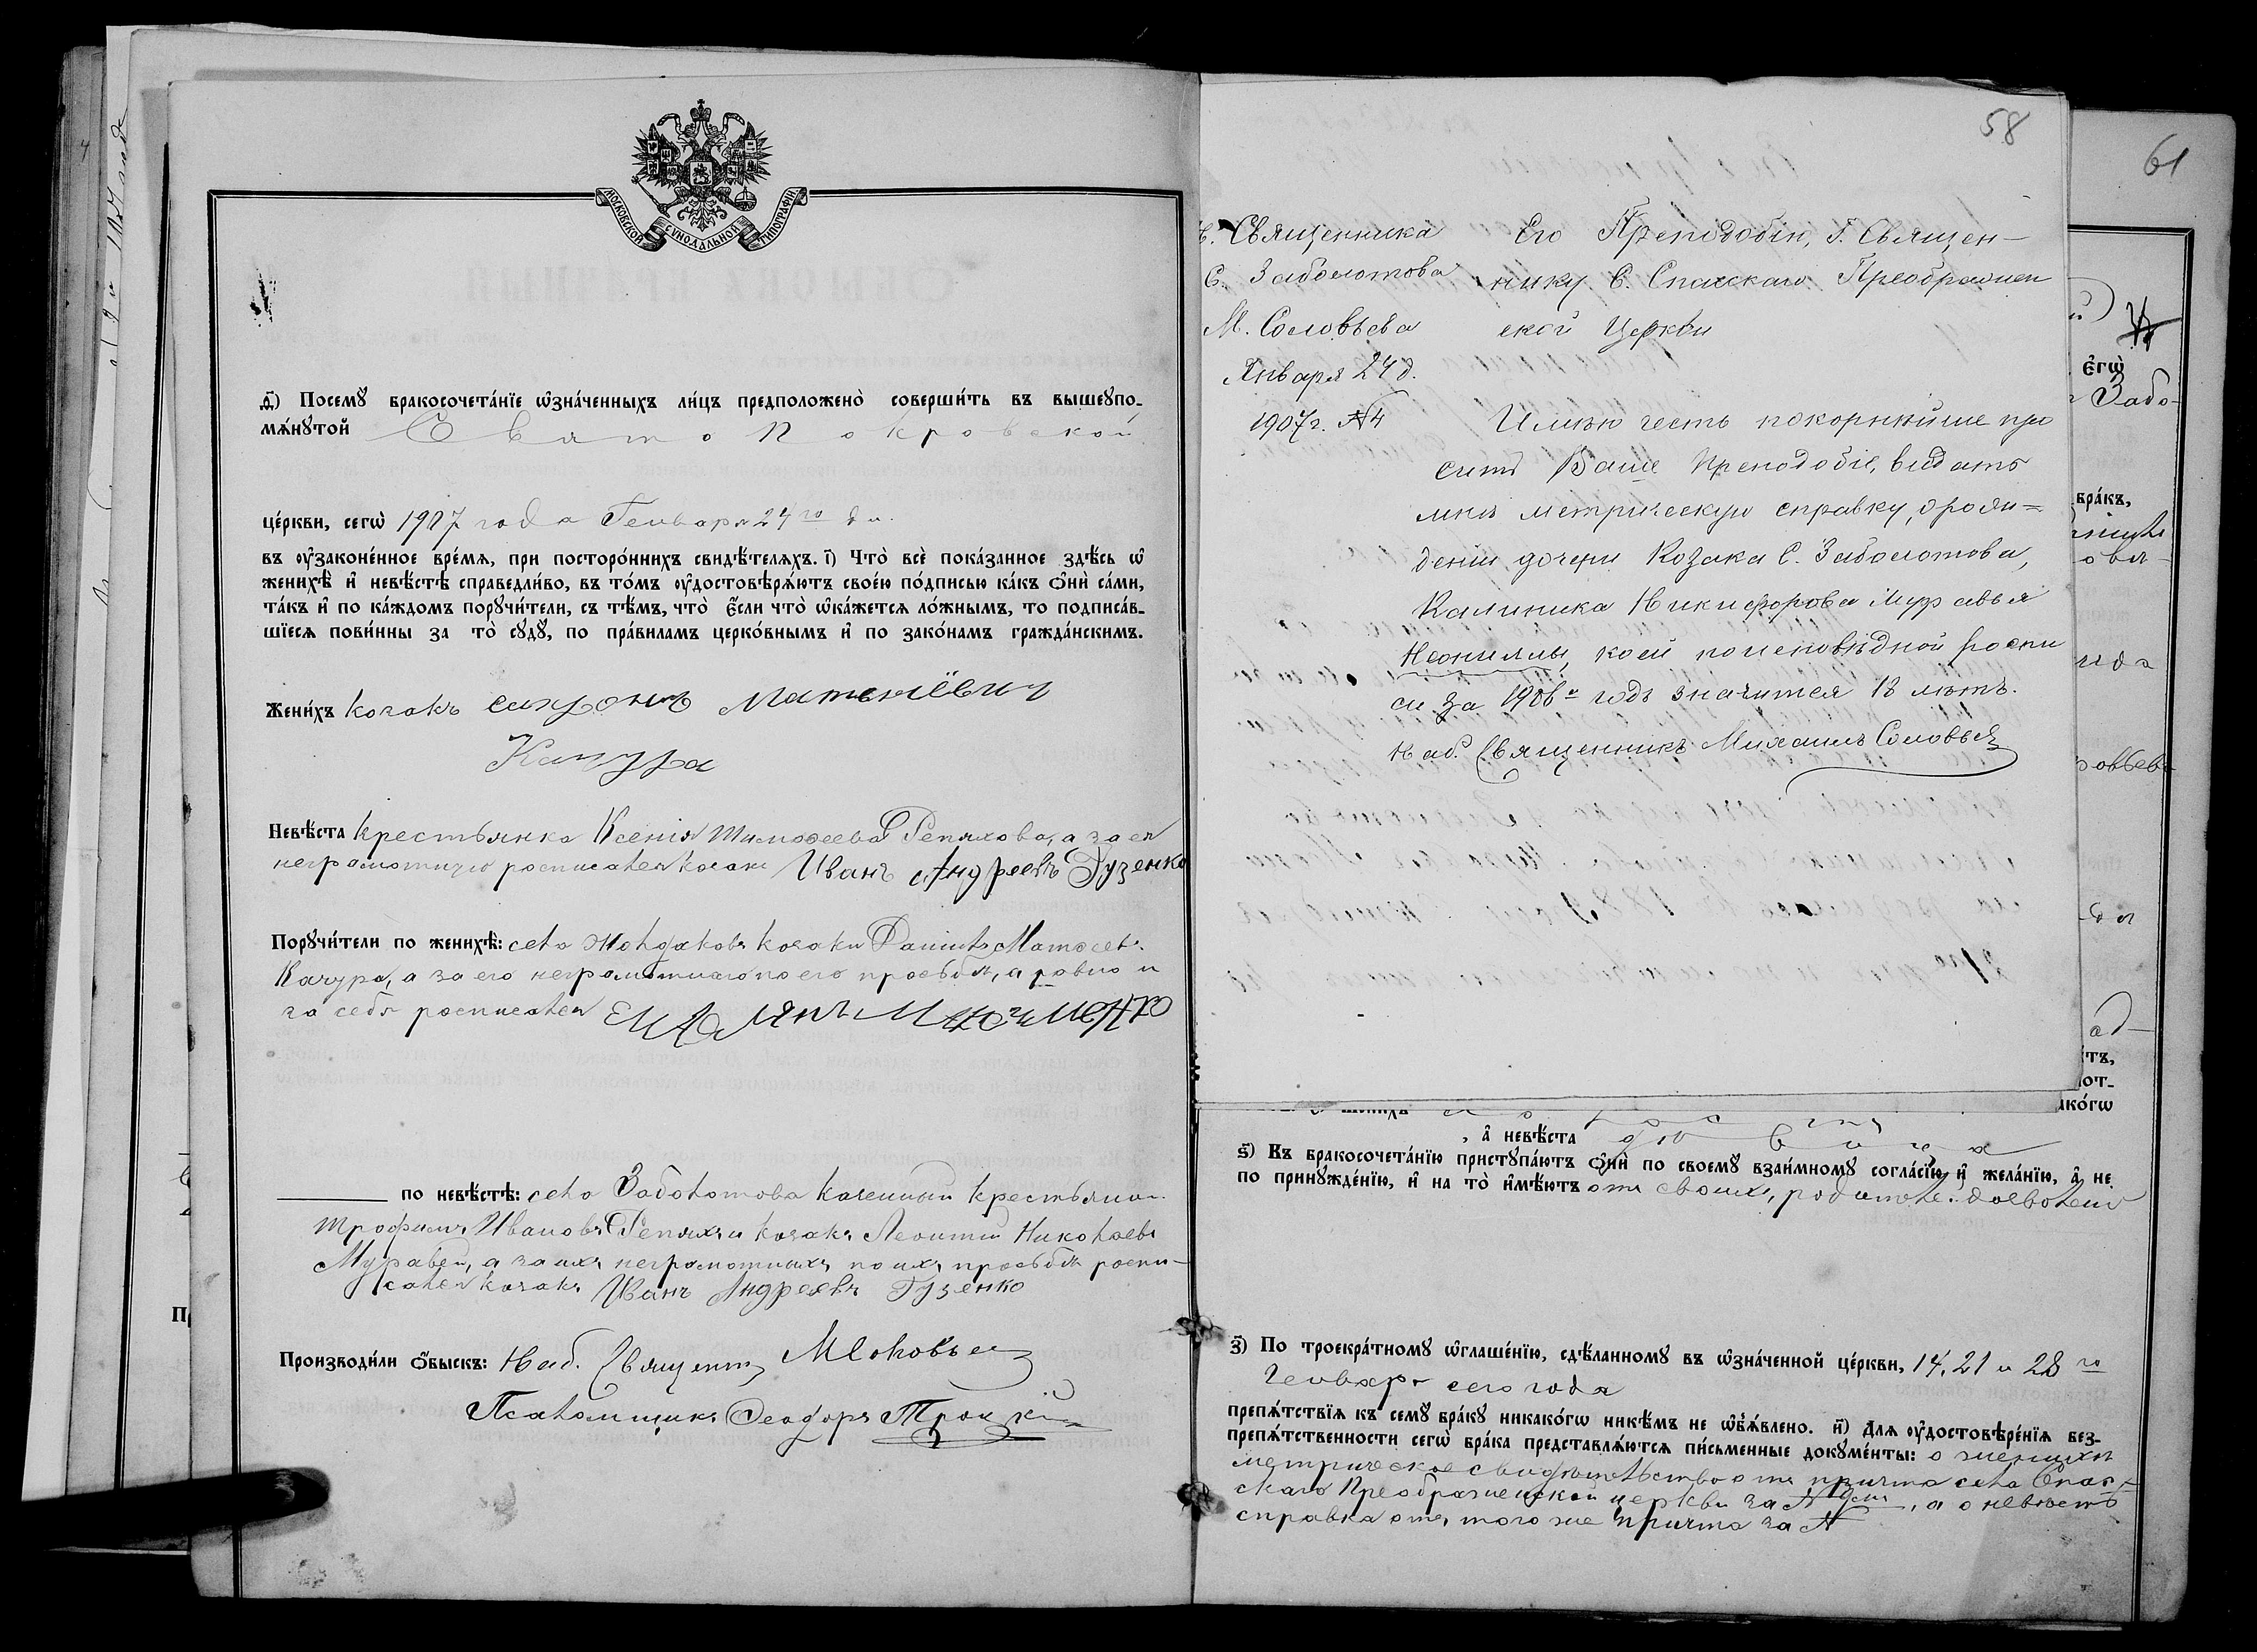 МОСКОВСКОЙ СѴНОДАЛЬНОЙ ТИПОГРАФІИ
д҃) Посемꙋ бракосочета́нїе ѡ҆зна́ченныхъ ли́цъ предположено̀ соверши́ть въ вышеꙋпо-
мѧ́нꙋтой Свято Покровской
це́ркви, сегѡ̀ 1907 года Генваря 24го дн.
въ ᲂу҆законе́нное вре́мѧ, при посторо́ннихъ свидѣ́телѧхъ. і҃) Что̀ всѐ пока́занное здѣ́сь ѡ҆
женихѣ̀ и҆ невѣ́стѣ справедли́во, въ то́мъ ᲂу҆достовѣрѧ́ютъ свое́ю по́дписью ка́къ ѻ҆нѝ са́ми,
та́къ и҆ по ка́ждомъ порꙋчи́тели, съ тѣ́мъ, что̀ є҆́сли что̀ ѡ҆ка́жетсѧ ло́жнымъ, то подписа́в-
шїесѧ пови́нны за то̀ сꙋдꙋ̀, по пра́виламъ церко́внымъ и҆ по зако́намъ гражда́нскимъ.
Жени́хъ козакъ Сафронъ Матвѣёвич
Качура
Невѣ́ста крестьянка Ксенія Тимофеева Репяхова, а за ея
неграмотную росписался козакъ Иванъ Андреевъ Гузенко
Порꙋчи́тели по женихѣ̀: села козаки Даніилъ Матфеевъ
Качура, а за его неграмотнаго по его просьбѣ, а ровно и
за себя росписался
по невѣ́стѣ: села Заболотова казенный крестьянин
Трофимъ Ивановъ Репяхъ и козакъ Леонтій Николаевъ
Муравей, а за ихъ неграмотныхъ по ихъ просьбѣ роспи-
сался козакъ Иванъ Андреевъ Гузенко
Производи́ли ѻ҆́быскъ: Наб. Священникъ М Соловьев
Псаломщикъ Феодоръ Троцкій
58
Священника
С. Заболотова
М. Соловьева
Января 24 д.
1907 г. №4
Его Преподобію, Г. Священ-
нику С. Спасскаго Преображен
ской Церкви
Имѣю честь покорнѣйше про
сить Ваше Преподобіе, видать
мнѣ метрическую справку, о рож-
деніи дочери Козака С. Заболотова,
Калиника Никифорова Муравья
Неониллы, коей по исповѣдной роспи
си за 1906й годъ значится 13 лѣтъ.
Наб. Священникъ Михаилъ Соловьев
61
є҆гѡ̀
Забо-
бра́къ,
, а҆ невѣ́ста дѣвица
ѕ҃) Къ бракосочета́нїю пристꙋпа́ютъ ѻ҆нѝ по своемꙋ̀ взаи́мномꙋ согла́сїю и҆ жела́нїю, а҆ не
по принꙋжде́нїю, и҆ на то̀ и҆мѣ́ютъ отъ своихъ родителей дозволеніе
з҃) По троекра́тномꙋ ѡ҆глаше́нїю, сдѣ́ланномꙋ въ ѡ҆зна́ченной це́ркви, 14, 21 и 28го
Генваря сего года
препѧ́тствїѧ къ семꙋ̀ бра́кꙋ никако́гѡ никѣ́мъ не ѡ҆б̾ѧ́влено. и҃) Для ᲂу҆достовѣре́нїѧ без-
препѧ́тственности сегѡ̀ бра́ка представлѧ́ютсѧ пи́сьменные докꙋме́нты: о женихѣ
метрическое свидѣтельство отъ причта села Спас-
скаго Преображенской церкви за №, а о невѣстѣ
справка отъ того же причта за №